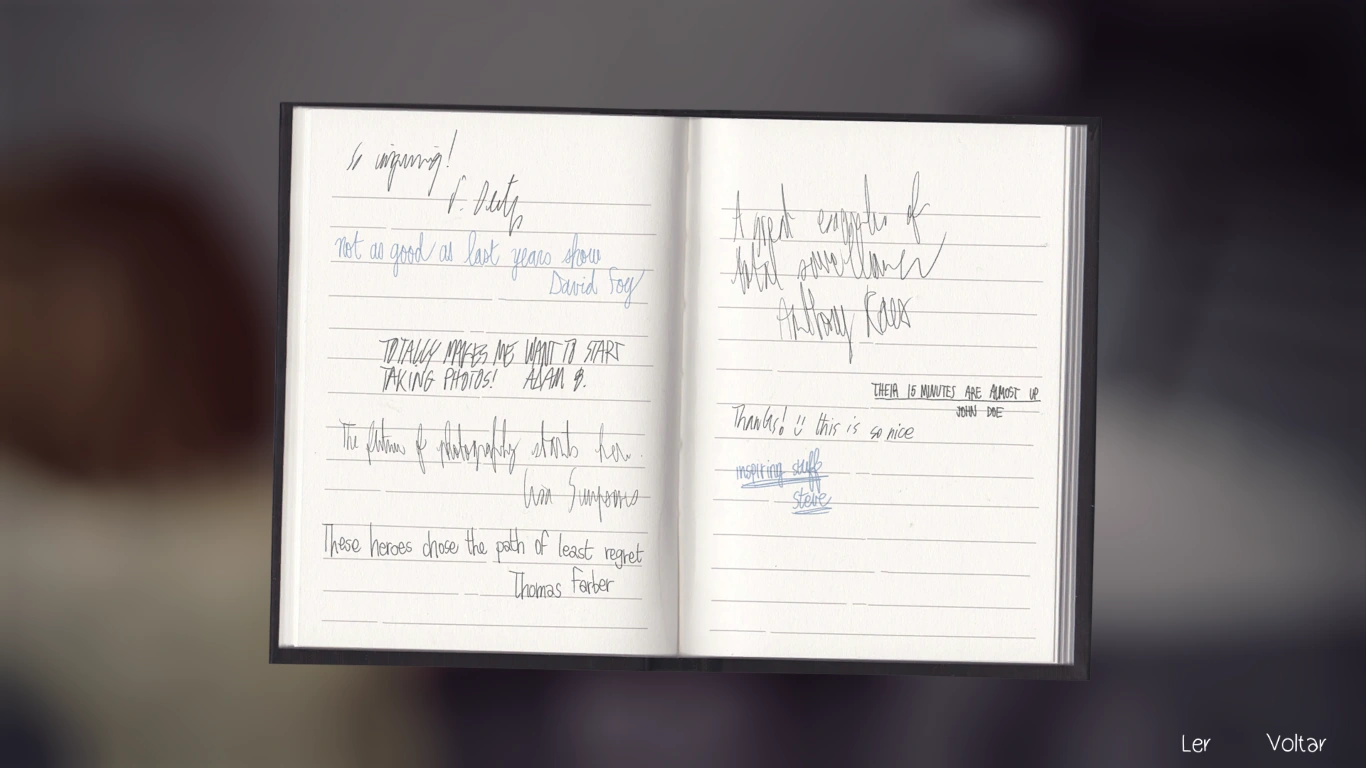 so inspiring!
not as good as last years show
David Foy
TOTALLY MAKES ME WANT TO START
TAKING PHOTOS! ADAM B.
The future of photography starts here.
Simpson
These heroes chose the path of least regret
Thomas Farber
A great example of
total surveillance
Anthony
THEIR 15 MINUTES ARE ALMOST UP
JOHN DOE
Thanks! this is so nice
inspiring stuff
steve
Ler Voltar